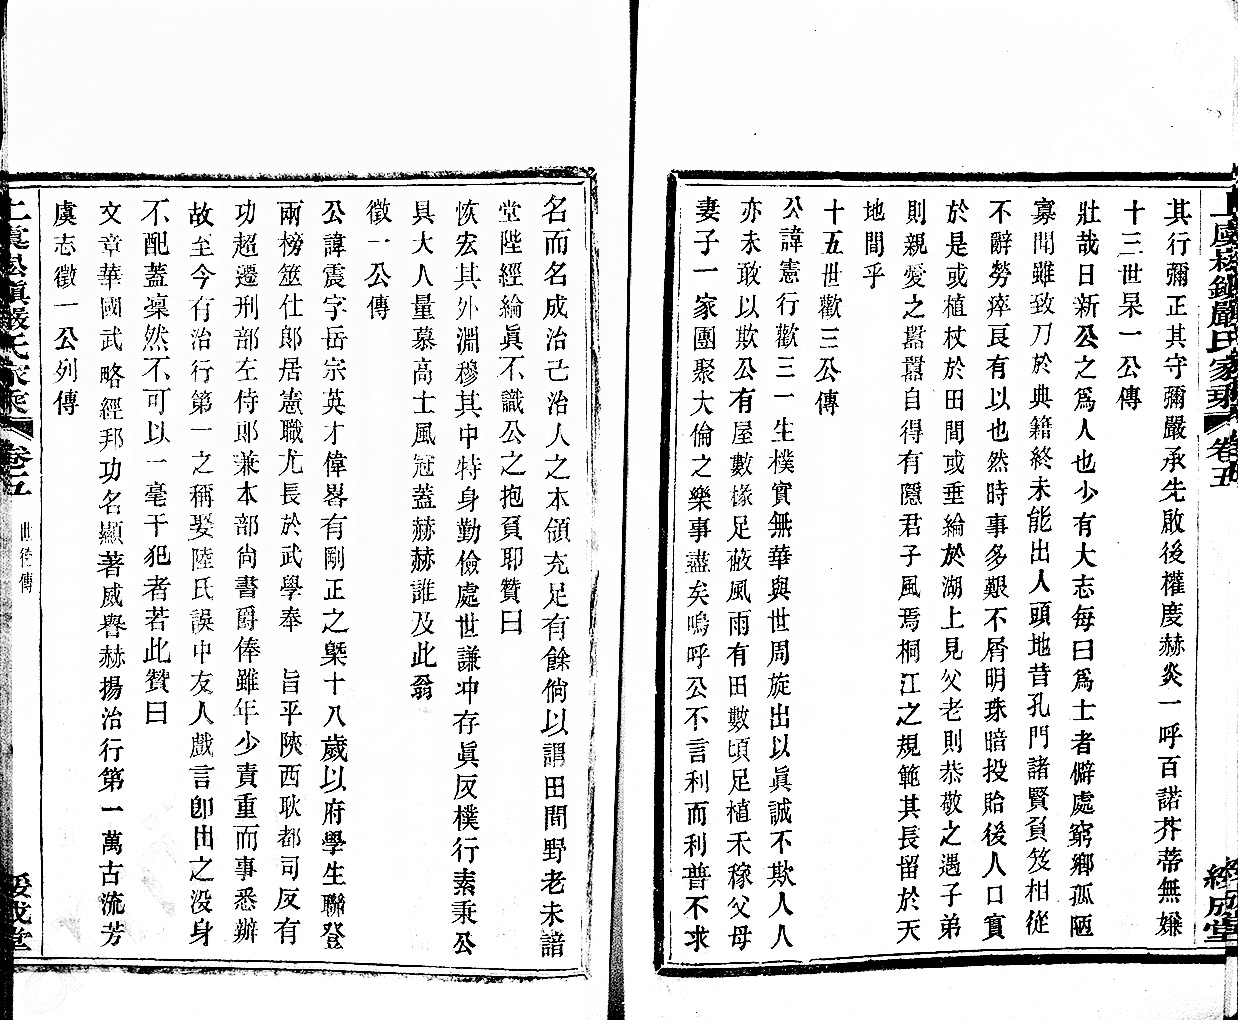 其行彌正其守彌嚴承先啟後權慶赫炎一呼百諾芥蒂無嫌
十三世杲一公傳
壯哉日新公之爲人也少有大志每曰爲士者僻處窮鄉孤陋
寡聞雖致力於典籍終未能出人頭地昔孔門諸賢負笈相從
不辭勞瘁良有以也然時事多艱不屑明珠暗投貽後人口實
於是或植杖於田間或垂綸於湖上見父老則恭敬之遇子弟
則親愛之囂囂自得有隱君子風焉桐江之規範其長留於天
地間乎
十五世歡三公傳
公諱憲行歡三一生樸實無華與世周旋出以眞誠不欺人人
亦未敢以欺公有屋數椽足蔽風雨有田數頃足植禾稼父母
妻子一家團聚大倫之樂事盡矣嗚呼公不言利而利普不求
名而名成治己治人之本領充足有餘倘以謂田間野老未諳
堂陛經綸眞不識公之抱負耶贊曰
恢宏其外淵穆其中特身勤儉處世謙冲存眞反樸行素秉公
具大人量慕高士風冠蓋赫赫誰及此翁
徵一公傳
公諱震字岳宗英才偉畧有剛正之槩十八歲以府學生聯登
兩榜筮仕郎居憲職尤長於武學奉 旨平陝西耿都司反有
功超遷刑部左侍郎兼本部尙書爵俸雖年少責重而事悉辦
故至今有治行第一之稱娶陸氏誤中友人戲言卽出之没身
不配蓋凜然不可以一毫干犯者若此贊曰
文章華國武略經邦功名顯著威譽赫揚治行第一萬古流芳
虞志徵一公列傳
上虞松鎭嚴氏家乘 卷五 世德傳
綏成堂